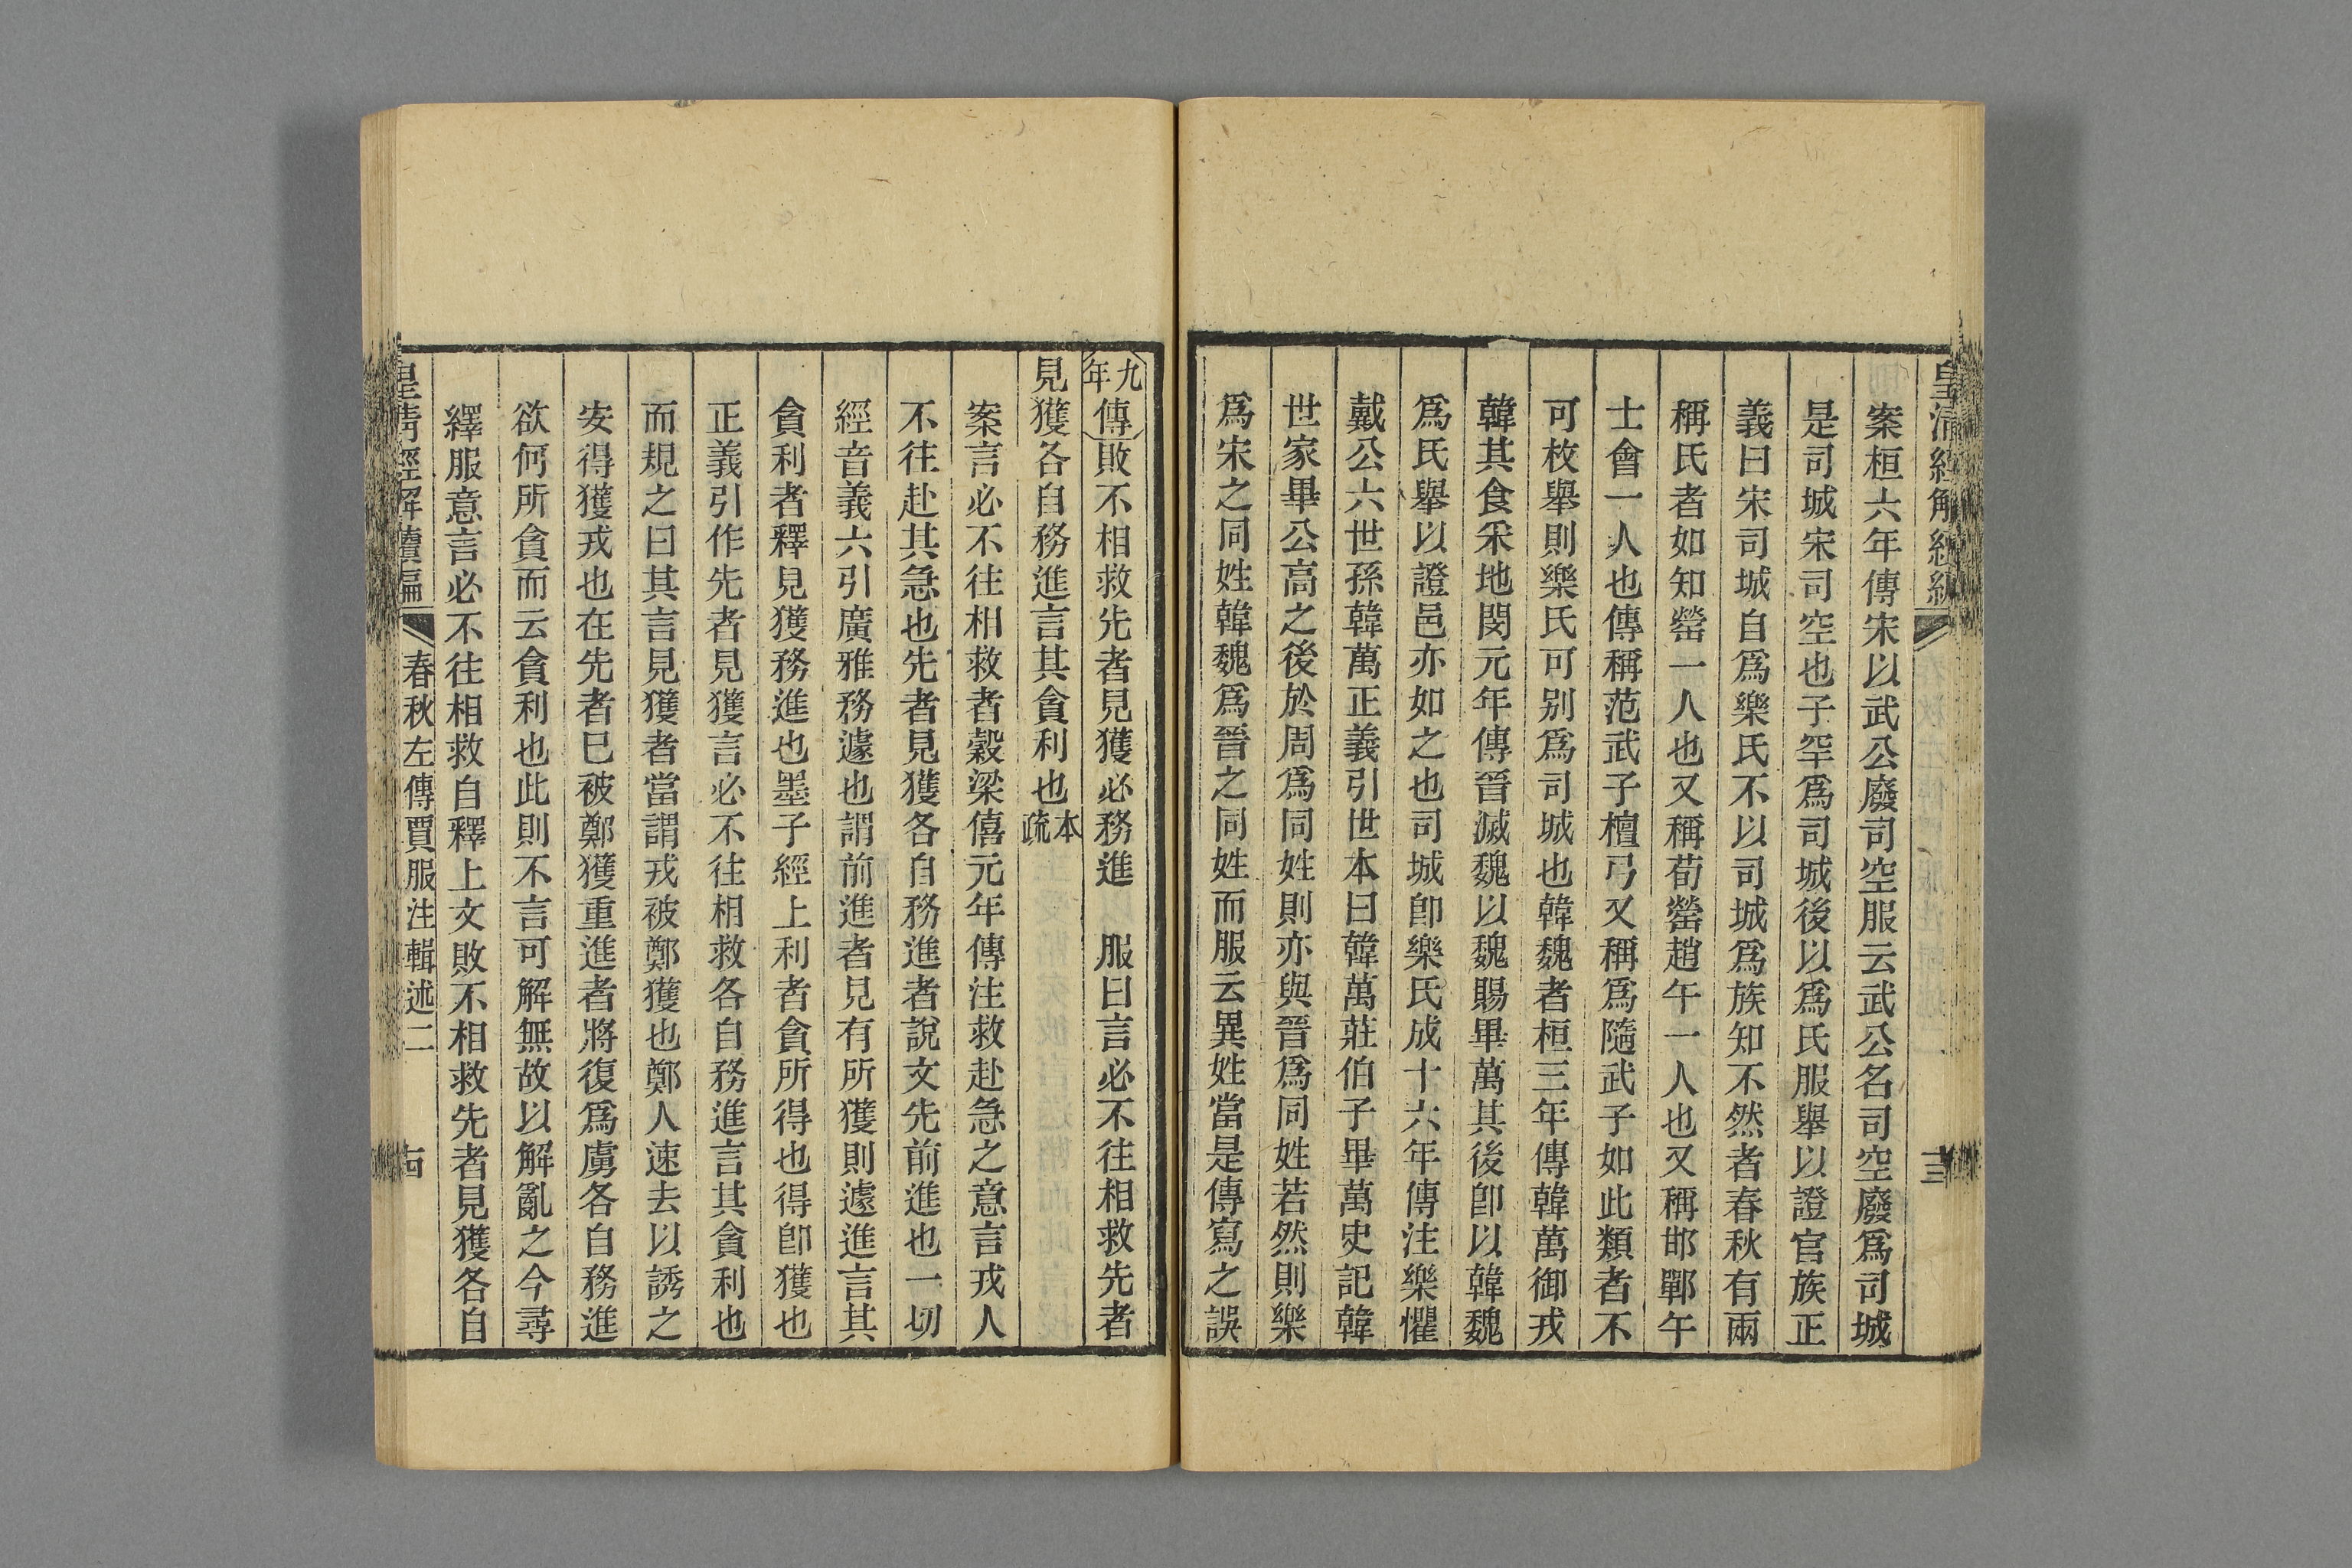 皇清經解續編
三
案桓六年傳宋以武公廢司空服云武公名司空廢爲司城
是司城宋司空也子罕爲司城後以爲氏服舉以證官族正
義曰宋司城自爲樂氏不以司城爲族知不然者春秋有兩
稱氏者如知罃一人也又稱荀罃趙午一人也又稱邯鄲午
士會一人也傳稱范武子檀弓又稱爲隨武子如此類者不
可枚舉則樂氏可别爲司城也韓魏者桓三年傳韓萬御戎
韓其食采地閔元年傳晉滅魏以魏賜畢萬其後卽以韓魏
爲氏舉以證邑亦如之也司城卽樂氏成十六年傳注樂懼
戴公六世孫韓萬正義引世本曰韓萬莊伯子畢萬史記韓
世家畢公高之後於周爲同姓則亦與晉爲同姓若然則樂
爲宋之同姓韓魏爲晉之同姓而服云異姓當是傳寫之誤
九年傳敗不相救先者見獲必務進　服曰言必不往相救先者
見獲各自務進言其貪利也本疏
案言必不往相救者穀梁僖元年傳注救赴急之意言戎人
不往赴其急也先者見獲各自務進者說文先前進也一切
經音義六引廣雅務遽也謂前進者見有所獲則遽進言其
貪利者釋見獲務進也墨子經上利者貪所得也得卽獲也
正義引作先者見獲言必不往相救各自務進言其貪利也
而規之曰其言見獲者當謂戎被鄭獲也鄭人速去以誘之
安得獲戎也在先者巳被鄭獲重進者將復爲虜各自務進
欲何所貪而云貪利也此則不言可解無故以解亂之今尋
繹服意言必不往相救自釋上文敗不相救先者見獲各自
皇清經解續編
春秋左傳賈服注輯述二